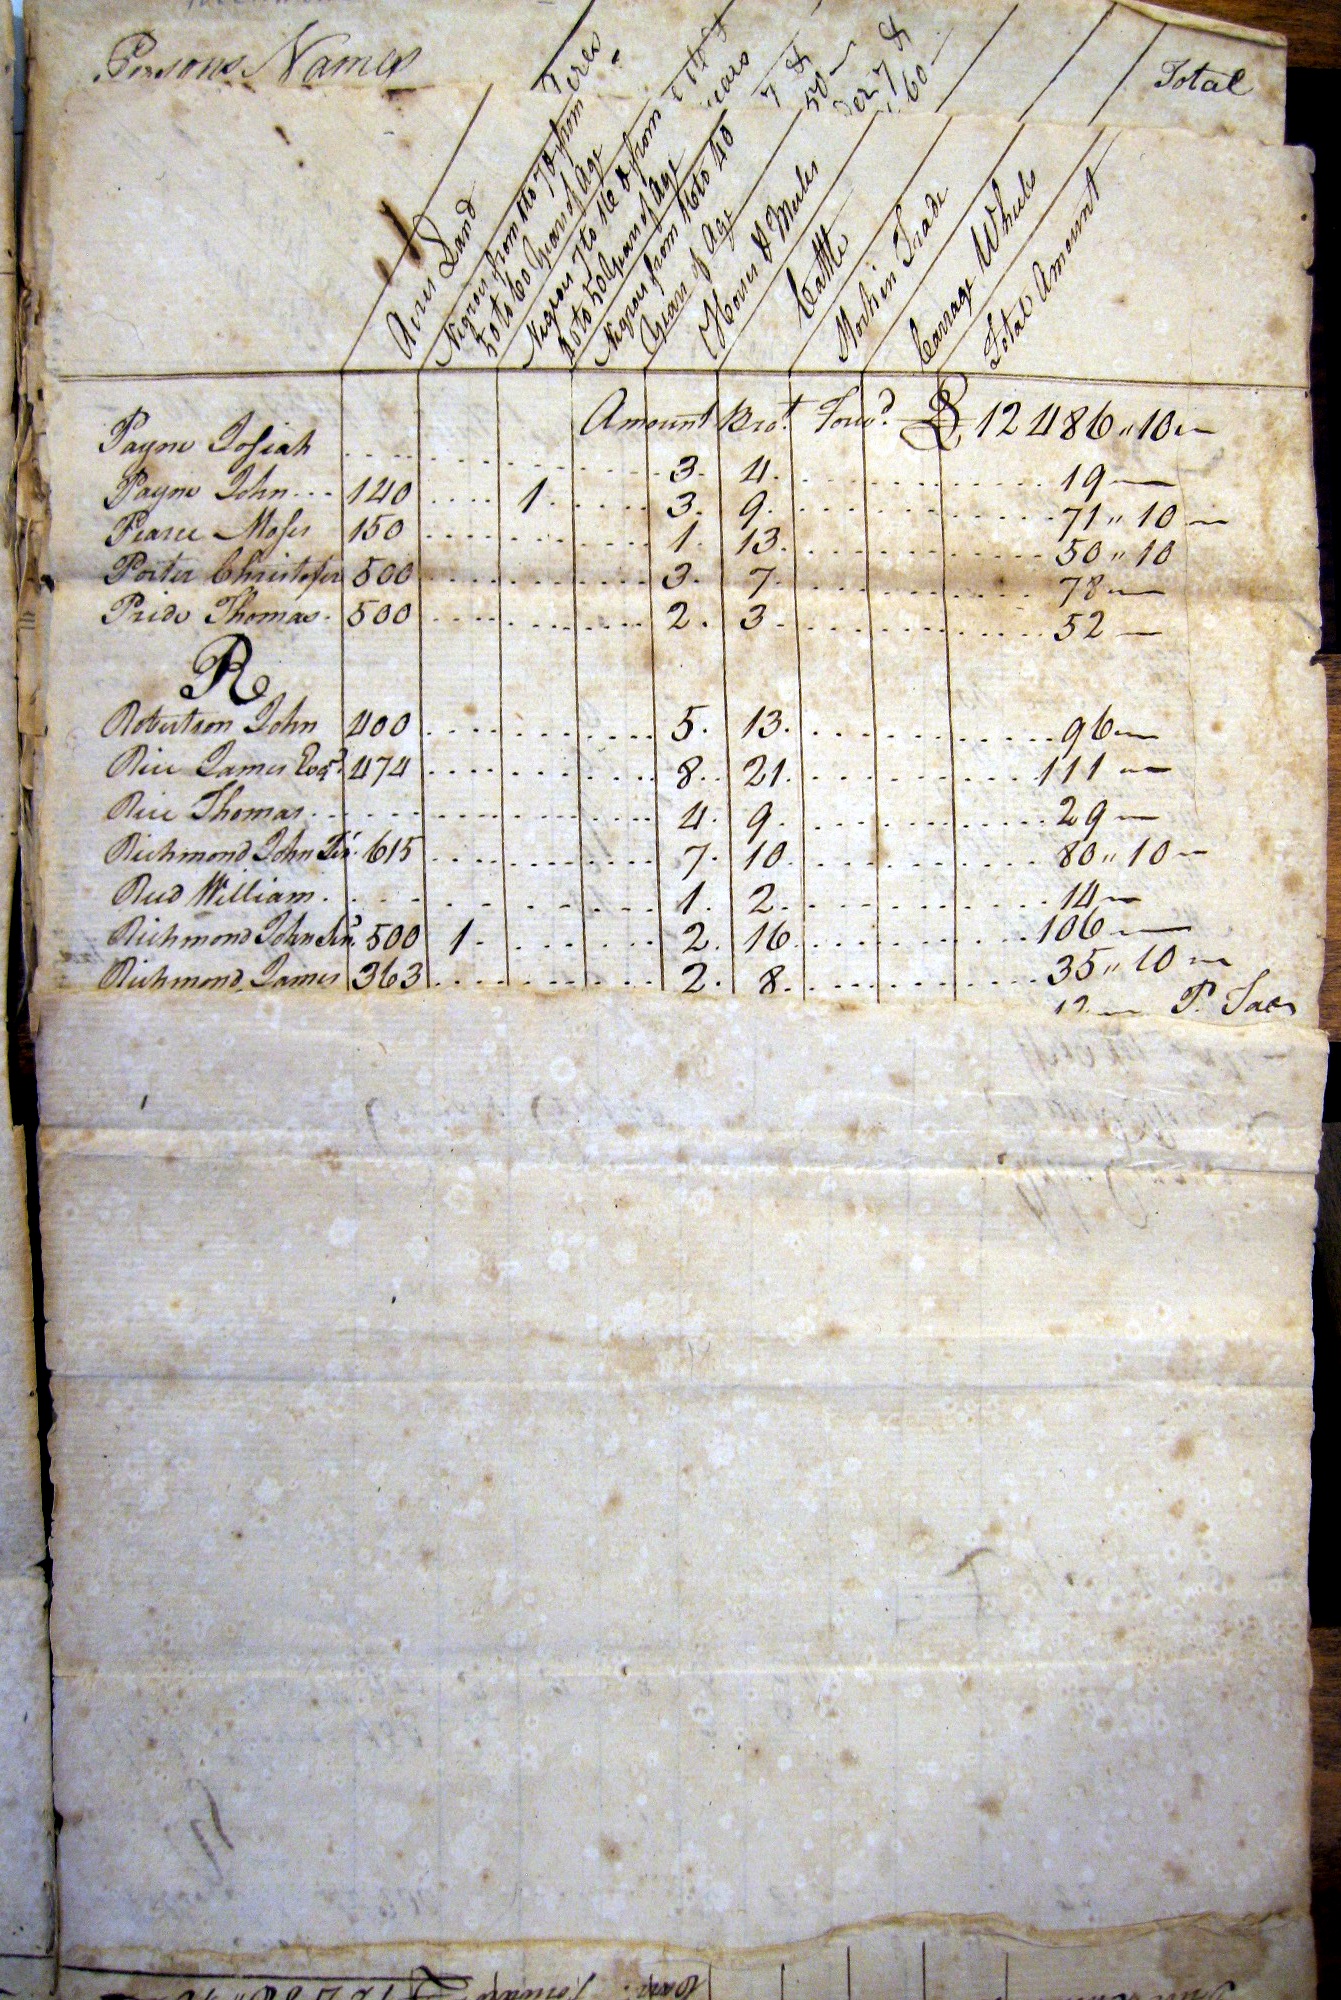 Persons Names
Total
Acres Land
Negroes from 1 to 7 & from
50 to 60 Years of Age
Negroes 7 to 16 & from
40 to 50 Years of Age
Negroes from 16 to 40
Years of Age
Horses & Mules
Cattle
Stock in Trade
Carrage Wheels
Total Amount
Amount Brot. Forwd. £ 12486〃10—
Payne Josiah . . . . 3. 4. . . . 19—
Payne John... 140 . . . . 1 . . . . 3. 9. . . . 71〃10—
Pearce Moses 150 . . . . 1. 13. . . . 50〃10
Porter Christofer 500 . . . . 3. 7. . . . 78—
Pride Thomas. 500 . . . . 2. 3. . . . 52—
R
Robertson John 400 . . . . 5. 13. . . . 96—
Rice James Esqr. 474 . . . . 8. 21. . . . 111—
Rice Thomas . . . . 4. 9. . . . 29—
Richmond John Jur. 615 . . . . 7. 10. . . . 80〃10—
Reed William . . . . 1. 2. . . . 14—
Richmond John Senr. 500 1. . . . 2. 16. . . . 106—
Richmond James 363 . . . . 2. 8. . . . 35〃10—
12— P.